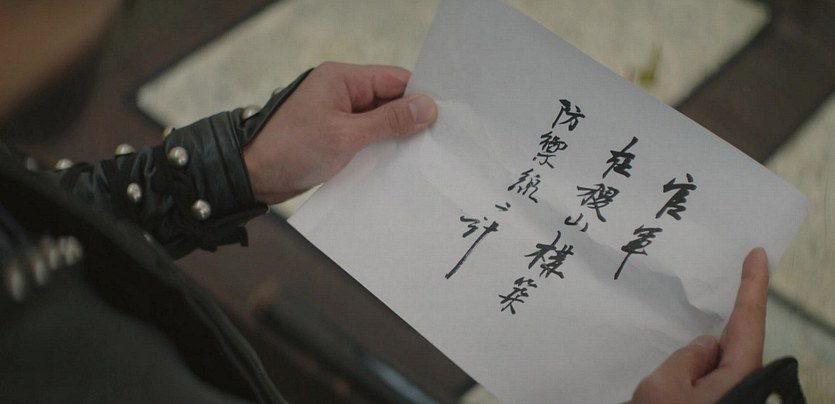 官軍
在稷山構築
防禦線之計